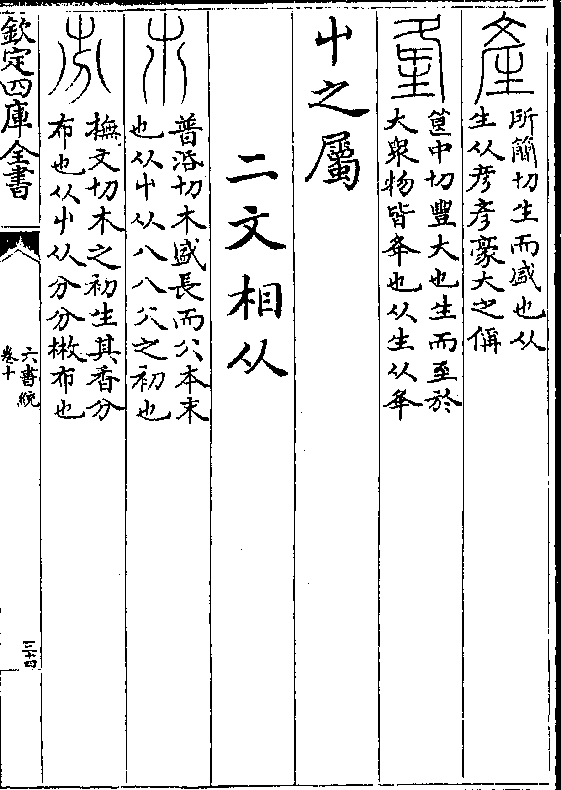 產
所簡切生而盛也从
生从彥彥豪大之稱
𡍮中切豐大也生而至於
大衆物皆夅也从生从夅
屮之屬
二文相从
普活切木盛長而八本末
也从屮从八八公之初也
撫文切木之初生其香分
布也从屮从分分㪚布也
欽定四庫全書
六書統
卷十
三十四